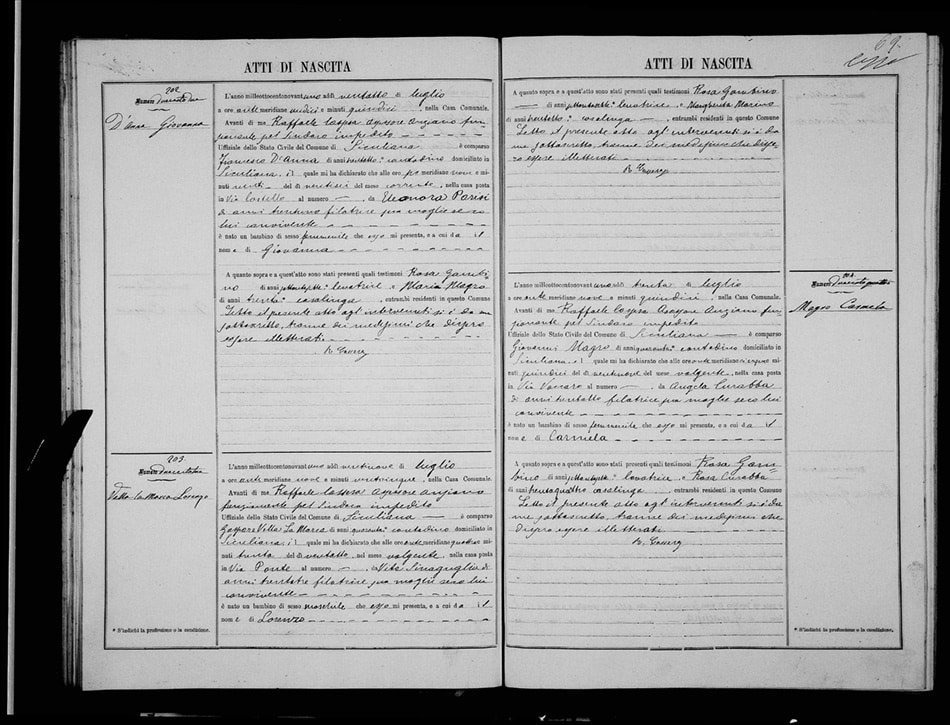 ATTI DI NASCITA
202
Numero duecentodue
D'Anna Giovanna
L'anno millottocentonovantuno addì ventotto di luglio
a ore anti meridiane undici e minuti quindici, nella Casa Comunale.
Avanti di me Raffaele
ponente pel Sindaco impedito
Uffiziale dello Stato Civile del Comune di Siculiana è comparso
Francesco D'Anna di anni contadino domiciliato in
Siculiana, il quale mi ha dichiarato che alle ore meridiane e mi-
nuti venti del dì ventisei del mese corrente, nella casa posta
in Via Castello al numero —, da Eleonora Parisi
di anni trentuno filatrice sua moglie seco
lui convivente
è nato un bambino di sesso femminile che esso mi presenta, e a cui dà il
nome di Giovanna
A quanto sopra e a quest'atto sono stati presenti quali testimoni Rosa Gambi-
no di anni levatrice e Maria Magro
di anni trenta casalinga, entrambi residenti in questo Comune
Letto il presente atto agl'intervenuti si è da me
sottoscritto, tranne dei medesimi che dissero
essere illetterati
203
Numero duecentotre
Vella La Marca Lorenzo
L'anno millottocentonovantuno addì ventinove di luglio
a ore anti meridiane nove e minuti venticinque, nella Casa Comunale.
Avanti di me Raffaele
funzionante pel Sindaco impedito
Uffiziale dello Stato Civile del Comune di Siculiana è comparso
Gaspare Vella La Marca di anni quaranta contadino domiciliato in
Siculiana, il quale mi ha dichiarato che alle ore antimeridiane quattro e mi-
nuti trenta del dì ventotto, nel mese volgente, nella casa posta
in Via Ponte al numero —, da Vita Sinaguglia di
anni trentatre filatrice sua moglie seco lui
convivente
è nato un bambino di sesso maschile che esso mi presenta, e a cui dà il
nome di Lorenzo
* S'indichi la professione o la condizione.
69
ATTI DI NASCITA
A quanto sopra e a quest'atto sono stati presenti quali testimoni Rosa Gambino
— di anni levatrice e Margherita Marino
di anni casalinga —, entrambi residenti in questo Comune
Letto il presente atto agl'intervenuti si è da
me sottoscritto, tranne dei medesimi che disse-
ro essere illetterati
204
Numero duecentoquattro
Magro Carmela
L'anno millottocentonovantuno addì trenta di luglio
a ore anti meridiane nove e minuti quindici, nella Casa Comunale.
Avanti di me Raffaele
ponente pel Sindaco impedito
Uffiziale dello Stato Civile del Comune di Siculiana è comparso
Giovanni Magro di anni quaranta contadino domiciliato in
Siculiana, il quale mi ha dichiarato che alle ore antimeridiane cinque e mi-
nuti quindici del dì ventinove del mese volgente, nella casa posta
in Via Vaccaro al numero —, da Angela Curabba
di anni trentotto filatrice sua moglie seco lui
convivente
è nato un bambino di sesso femminile che esso mi presenta, e a cui dà il
nome di Carmela
A quanto sopra e a quest'atto sono stati presenti quali testimoni Rosa Gam-
bino di anni levatrice e Rosa Curabba
di anni trentaquattro casalinga, entrambi residenti in questo Comune
Letto il presente atto agl'intervenuti si è da
me sottoscritto tranne dei medesimi che
dissero essere illetterati
* S'indichi la professione o la condizione.